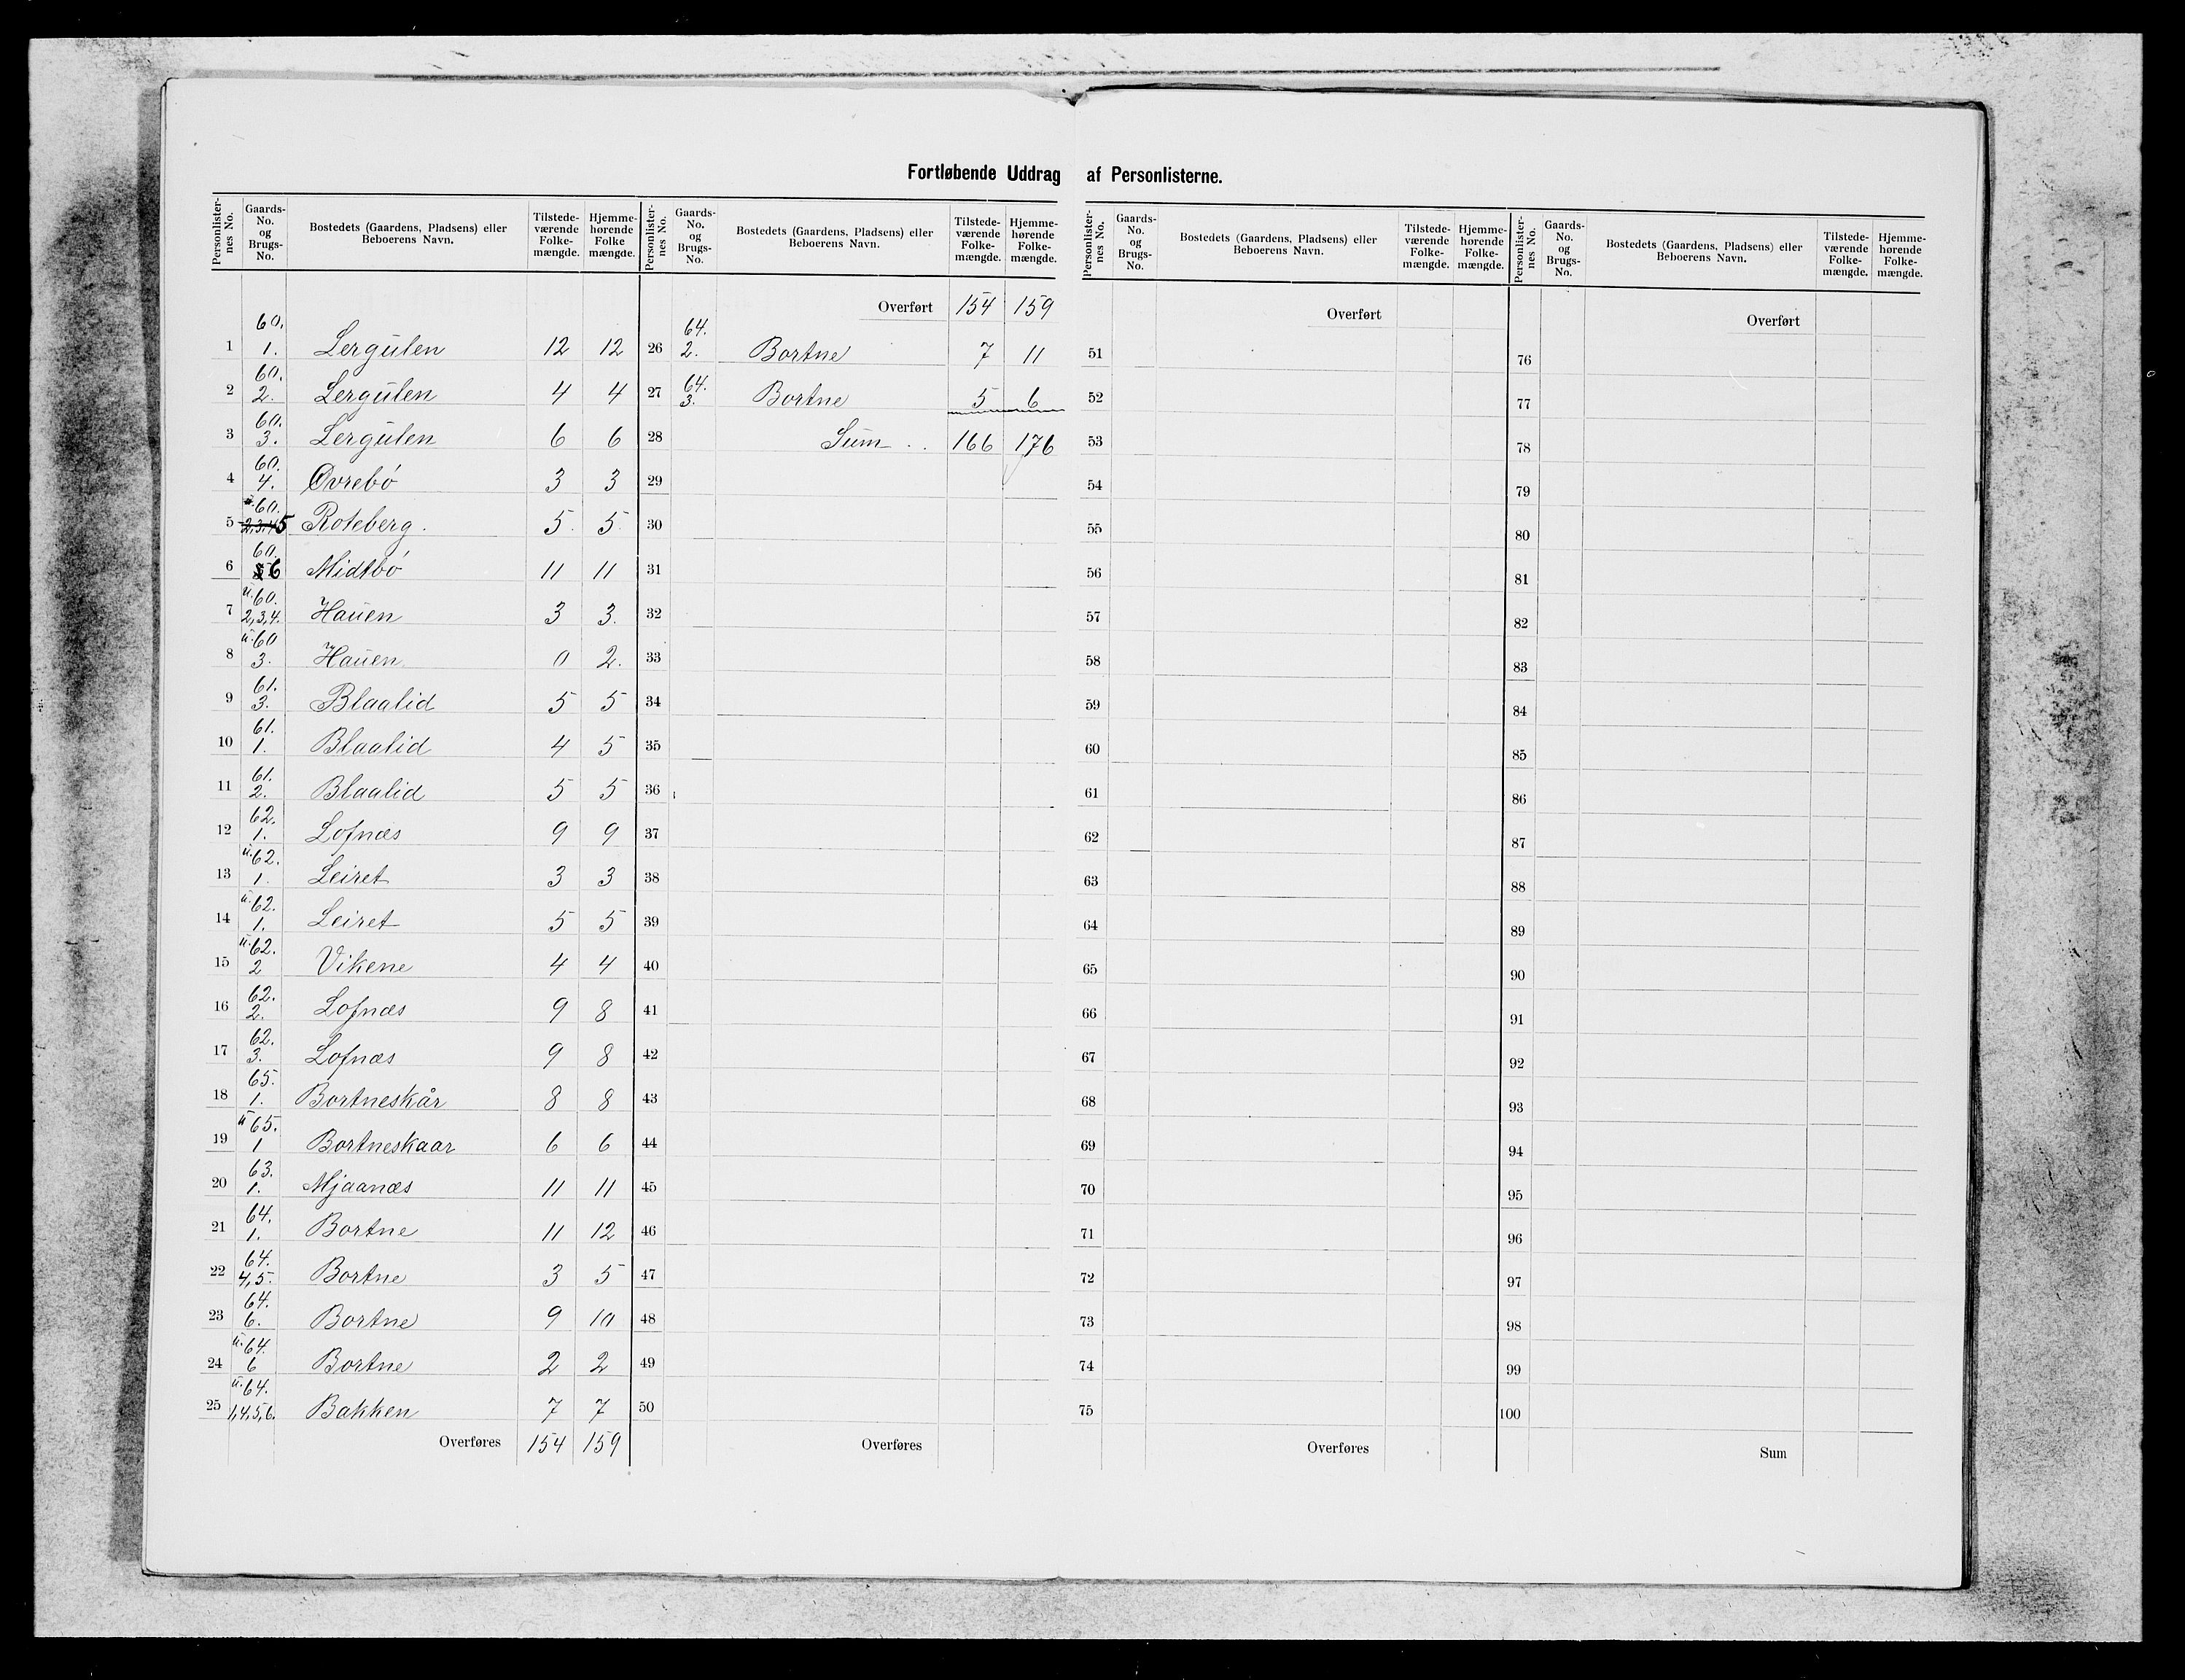 Fortløbende Uddrag af Personlisterne.
Personlister-nes No. Gaards-No. og Brugs-No. Bostedets (Gaardens, Pladsens) eller Beboerens Navn. Tilstede-værende Folke-mængde. Hjemme-hørende Folke mængde.
60.
1 1. Lergülen 12 12
60.
2 2. Lergülen 4 4
60.
3 3. Lergülen 6 6
60.
4 4. Øvrebö 3 3
u. 60.
5 2,3,4 5 Roteberg. 5. 5.
60.
6 6 Midtbö 11 11
u. 60.
7 2,3,4. Haüen 3 3.
u. 60
8 3. Haüen 0 2.
61.
9 3. Blaalid 5 5
61.
10 1. Blaalid 4 5
61.
11 2. Blaalid 5 5
62.
12 1. Lofnæs 9 9
u. 62.
13 1. Leiret 3 3
u. 62.
14 1. Leiret 5 5
u. 62.
15 2 Vikene 4 4
62.
16 2. Lofnæs 9 8
62.
17 3. Lofnæs 9 8
65.
18 1. Bortneskår 8 8
u 65.
19 1 Bortneskaar 6 6
63.
20 1. Mjaanæs 11 11
64.
21 1. Bortne 11 12
64.
22 4,5. Bortne 3 5
64.
23 6. Bortne 9 10
u. 64.
24 6 Bortne 2 2
u. 64.
25 1,4,5,6. Bakken 7 7
Overføres 154 159
Personlister-nes No. Gaards-No. og Brugs-No. Bostedets (Gaardens, Pladsens) eller Beboerens Navn. Tilstede-værende Folke-mængde. Hjemme-hørende Folke-mængde.
Overført 154 159
64.
26 2. Bortne 7 11
64.
27 3. Bortne 5 6
28 Sum . . 166 176
29
30
31
32
33
34
35
36
37
38
39
40
41
42
43
44
45
46
47
48
49
50
Overføres
Personlister-nes No. Gaards-No. og Brugs-No. Bostedets (Gaardens, Pladsens) eller Beboerens Navn. Tilstede-værende Folke-mængde. Hjemme-hørende Folke-mængde.
Overført
51
52
53
54
55
56
57
58
59
60
61
62
63
64
65
66
67
68
69
70
71
72
73
74
75
Overføres
Personlister-nes No. Gaards-No. og Brugs-No. Bostedets (Gaardens, Pladsens) eller Beboerens Navn. Tilstede-værende Folke-mængde. Hjemme-hørende Folke-mængde.
Overført
76
77
78
79
80
81
82
83
84
85
86
87
88
89
90
91
92
93
94
95
96
97
98
99
100
Sum